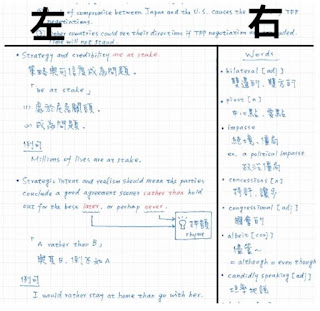 左
右
of compromise between Japan and the U.S. causes the TPP
negotiations.
other countries could see their directions if TPP negotiation
will not stand.
• Strategy and credibility are at stake.
策略與可信度成為問題。
「be at stake」
(1) 處於危急關頭。
(2) 成為問題。
例句
Millions of lives are at stake.
• Strategic intent and realism should mean the parties
conclude a good agreement sooner rather than hold
out for the best later, or perhaps never.
押韻
rhyme
「A rather than B」
與其B，倒不如A
例句
I would rather stay at home than go with her.
Words
• bilateral [adj]
雙邊的、雙方的
• pivot [n]
中心點、重點
• impasse
絕境、僵局
ex. a political impasse
政治僵局
• concessions [n]
特許、讓步
• congressional [adj]
國會的
• albeit [conj]
儘管~
= although = even though
• candidly speaking [ad]
坦率地說